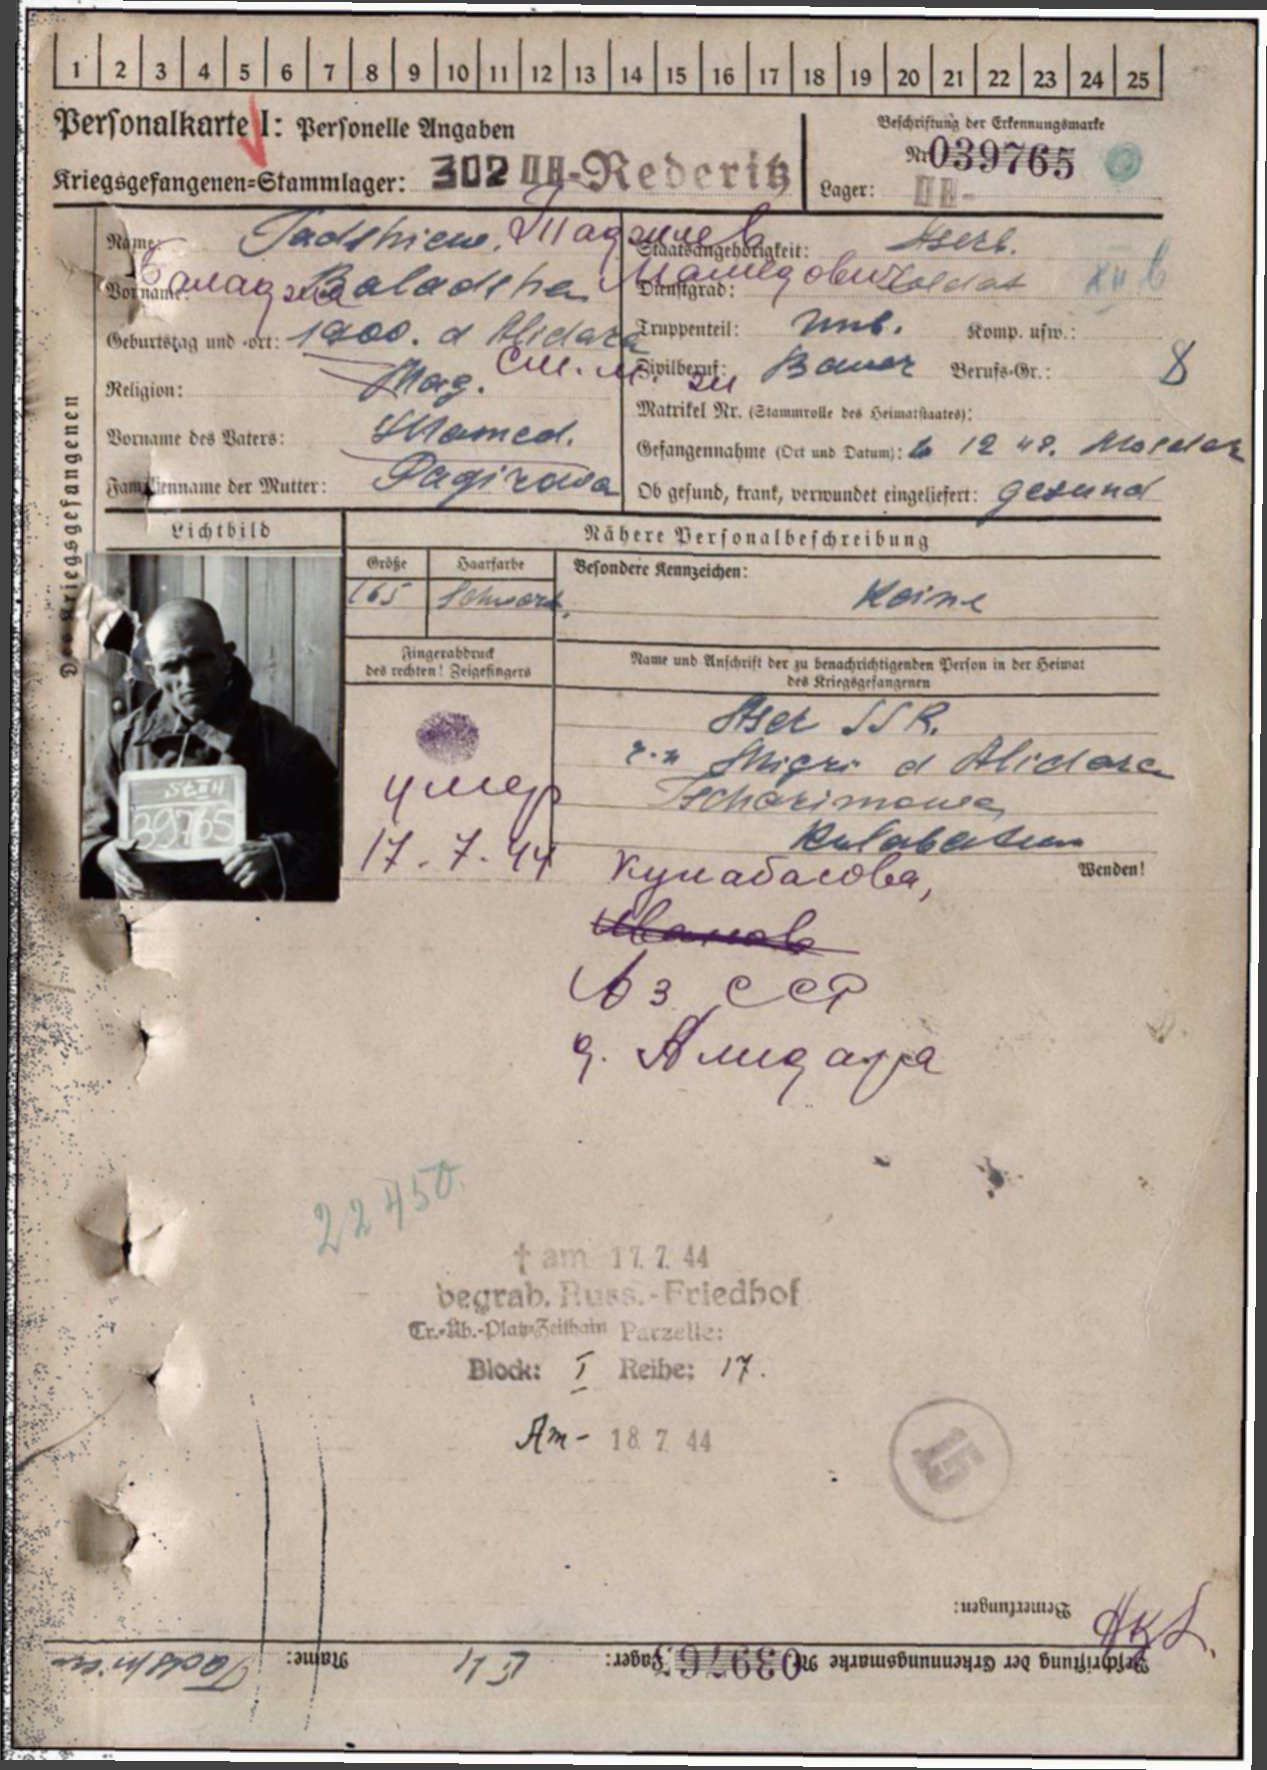 1 2 3 4 5 6 7 8 9 10 11 12 13 14 15 16 17 18 19 20 21 22 23 24 25
Personalkarte I: Personelle Angaben
Kriegsgefangenen=Stammlager: 302 II H-Rederitz
Beschriftung der Erkennungsmarke
Nr 039765
Lager: II H-
Des Kriegsgefangenen
Name: Tadshiew, Таджиев
Vorname: Baladsha Баладжа Мамедович
Geburtstag und -ort: 1900. d Alidara
Religion: Mag.
Vorname des Vaters: Mamed.
Familienname der Mutter: Pagirowa
Staatsangehörigkeit: Aserb.
Dienstgrad: Soldat
Truppenteil: Unb. Komp. usw.:
Zivilberuf: Bauer Berufs-Gr.: 8
Matrikel Nr. (Stammrolle des Heimatstaates):
Gefangennahme (Ort und Datum): 6 12 42. Mosdok
Ob gesund, krank, verwundet eingeliefert: gesund
Lichtbild
Nähere Personalbeschreibung
Größe Haarfarbe Besondere Kennzeichen:
165 Schwarz. Keine
Fingerabdruck
des rechten! Zeigefingers
Name und Anschrift der zu benachrichtigenden Person in der Heimat
des Kriegsgefangenen
Aser SSR.
r.n Migri d Alidara
St II H
39765
умер
17.7.44
Wenden!
Аз ССР
д. Алидара
22450.
† am 17. 7. 44
begrab. Russ.-Friedhof
Tr.-Üb.-Platz Zeithain Parzelle:
Block: I Reihe: 17.
Am- 18. 7. 44
15
Bemerkungen:
Beschriftung der Erkennungsmarke Nr. 039765 Lager: II H Name: Tadshiew